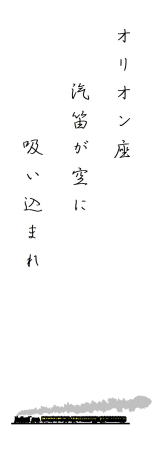 オリオン座
汽笛が空に
吸い込まれ